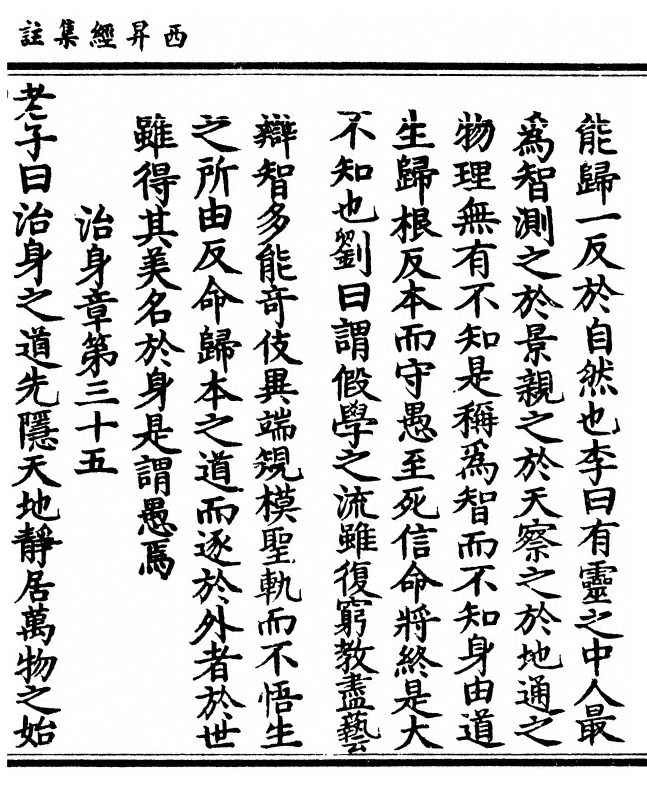 西昇經集註
能歸一反於自然也李曰有靈之中人最
為智測之於景親之於天察之於地通之
物理無有不知是稱為智而不知身由道
生歸根反本而守愚至死信命將終是大
不知也劉曰謂假學之流雖復窮教盡藝
辯智多能奇伎異端規模聖軌而不悟生
之所由反命歸本之道而逐於外者於世
雖得其美名於身是謂愚焉
治身章第三十五
老子曰治身之道先隱天地靜居萬物之始